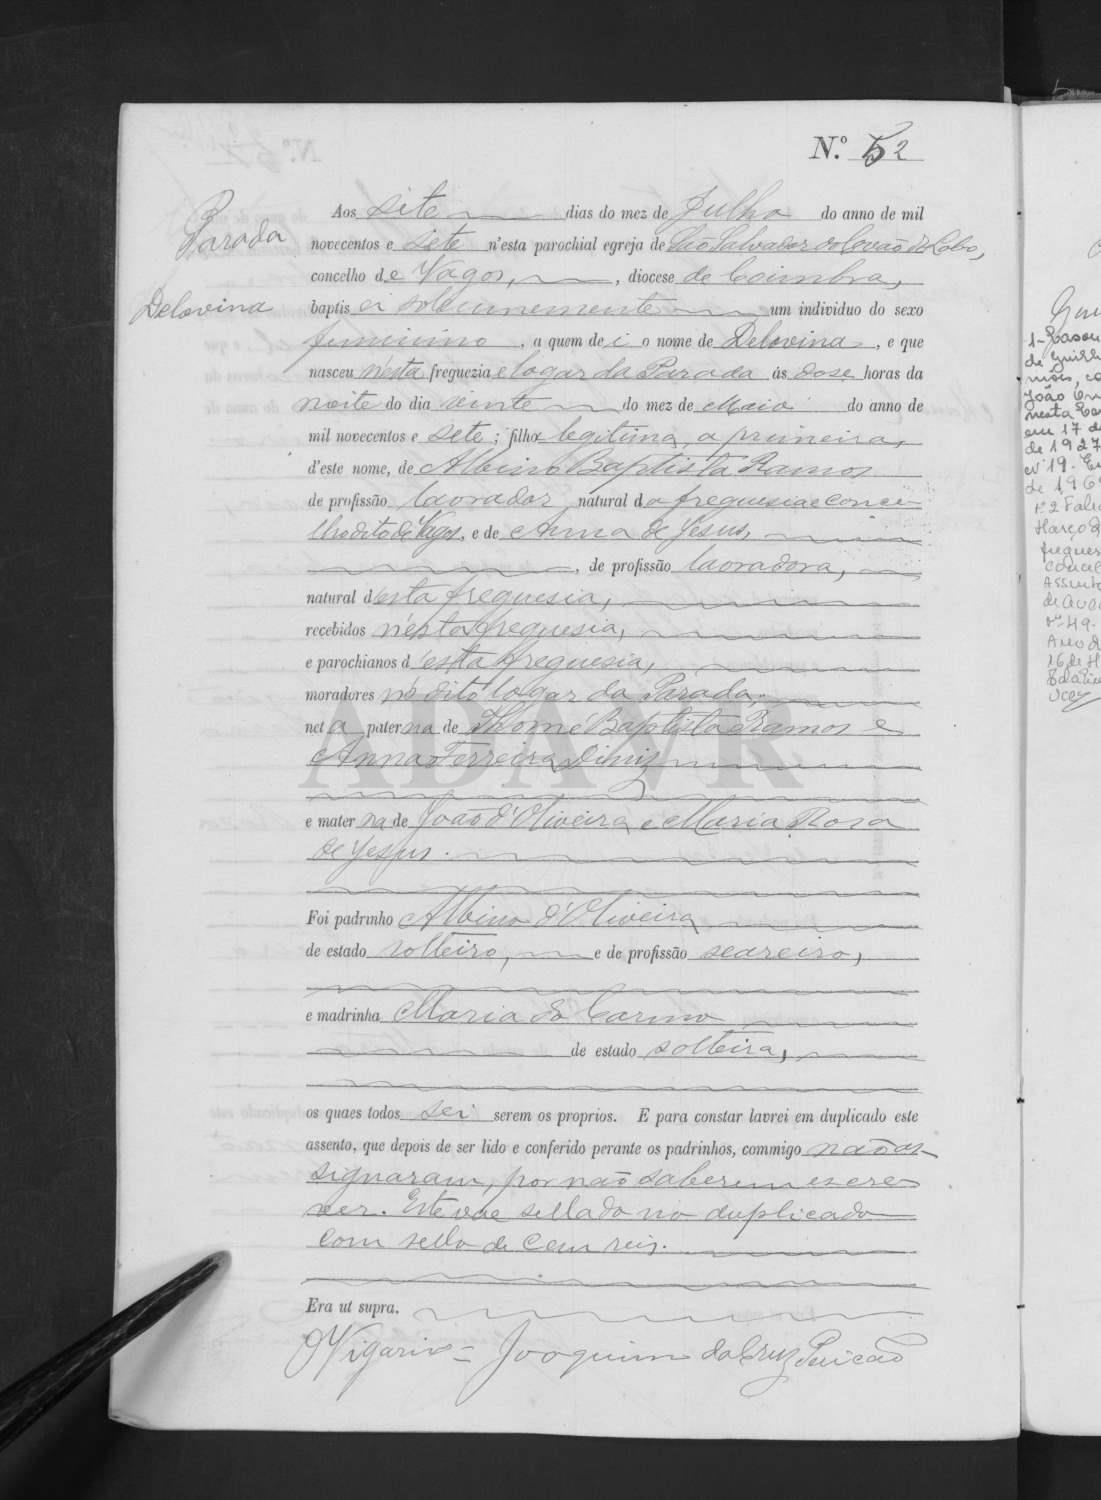 N.º 52
Parada
Delovina
Aos sete dias do mez de Julho do anno de mil
novecentos e sete n'esta parochial egreja de São Salvador do Covão do Lobo,
concelho de Vagos, , diocese de Coimbra,
baptisei solemnemente um individuo do sexo
feminino , a quem dei o nome de Delovina , e que
nasceu nésta freguezia e logar da Parada ás dose horas da
noite do dia vinte do mez de Maio do anno de
mil novecentos e sete ; filha legitima, a primeira,
d'este nome, de Albino Baptista Ramos
de profissão lavrador natural da freguesia e conce
lho dito de Vagos, e de Anna de Jesus,
, de profissão lavradora,
natural d'esta freguesia,
recebidos n'ésta freguesia,
e parochianos d'esta freguesia,
moradores nó dito logar da Parada;
neta paterna de Thomé Baptista Ramos e
Anna Ferreira Diniz
e materna de João d'Oliveira e Maria Rosa
de Jesus.
Foi padrinho Albino d'Oliveira
de estado solteiro, e de profissão seareiro,
e madrinha Maria do Carmo
de estado solteira,
os quaes todos sei serem os proprios. E para constar lavrei em duplicado este
assento, que depois de ser lido e conferido perante os padrinhos, commigo não as-
signaram, por não saberem escre
ver. Este vae sellado no duplicado
com sello de cem reis.
Era ut supra.
O Vigario = Joaquim da Cruz Pericão
ADAVR
1-Casou
de
em 17 de
de 1927
nº 19.
de 196